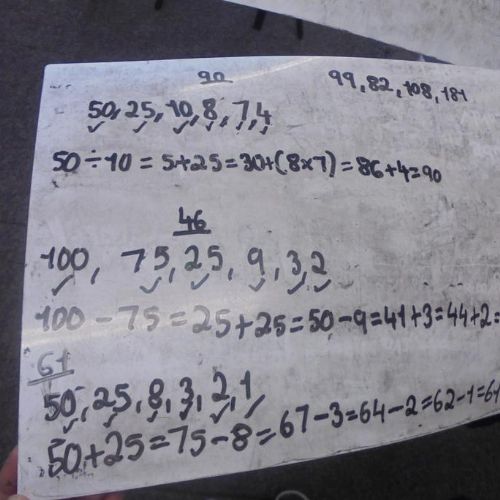 90
99, 82, 108, 181
50, 25, 10, 8, 7, 4
50 ÷ 10 = 5 + 25 = 30 + (8 x 7) = 86 + 4 = 90
46
100, 75, 25, 9, 3, 2
100 - 75 = 25 + 25 = 50 - 9 = 41 + 3 = 44 + 2 =
61
50, 25, 8, 3, 2, 1
50 + 25 = 75 - 8 = 67 - 3 = 64 - 2 = 62 - 1 = 61